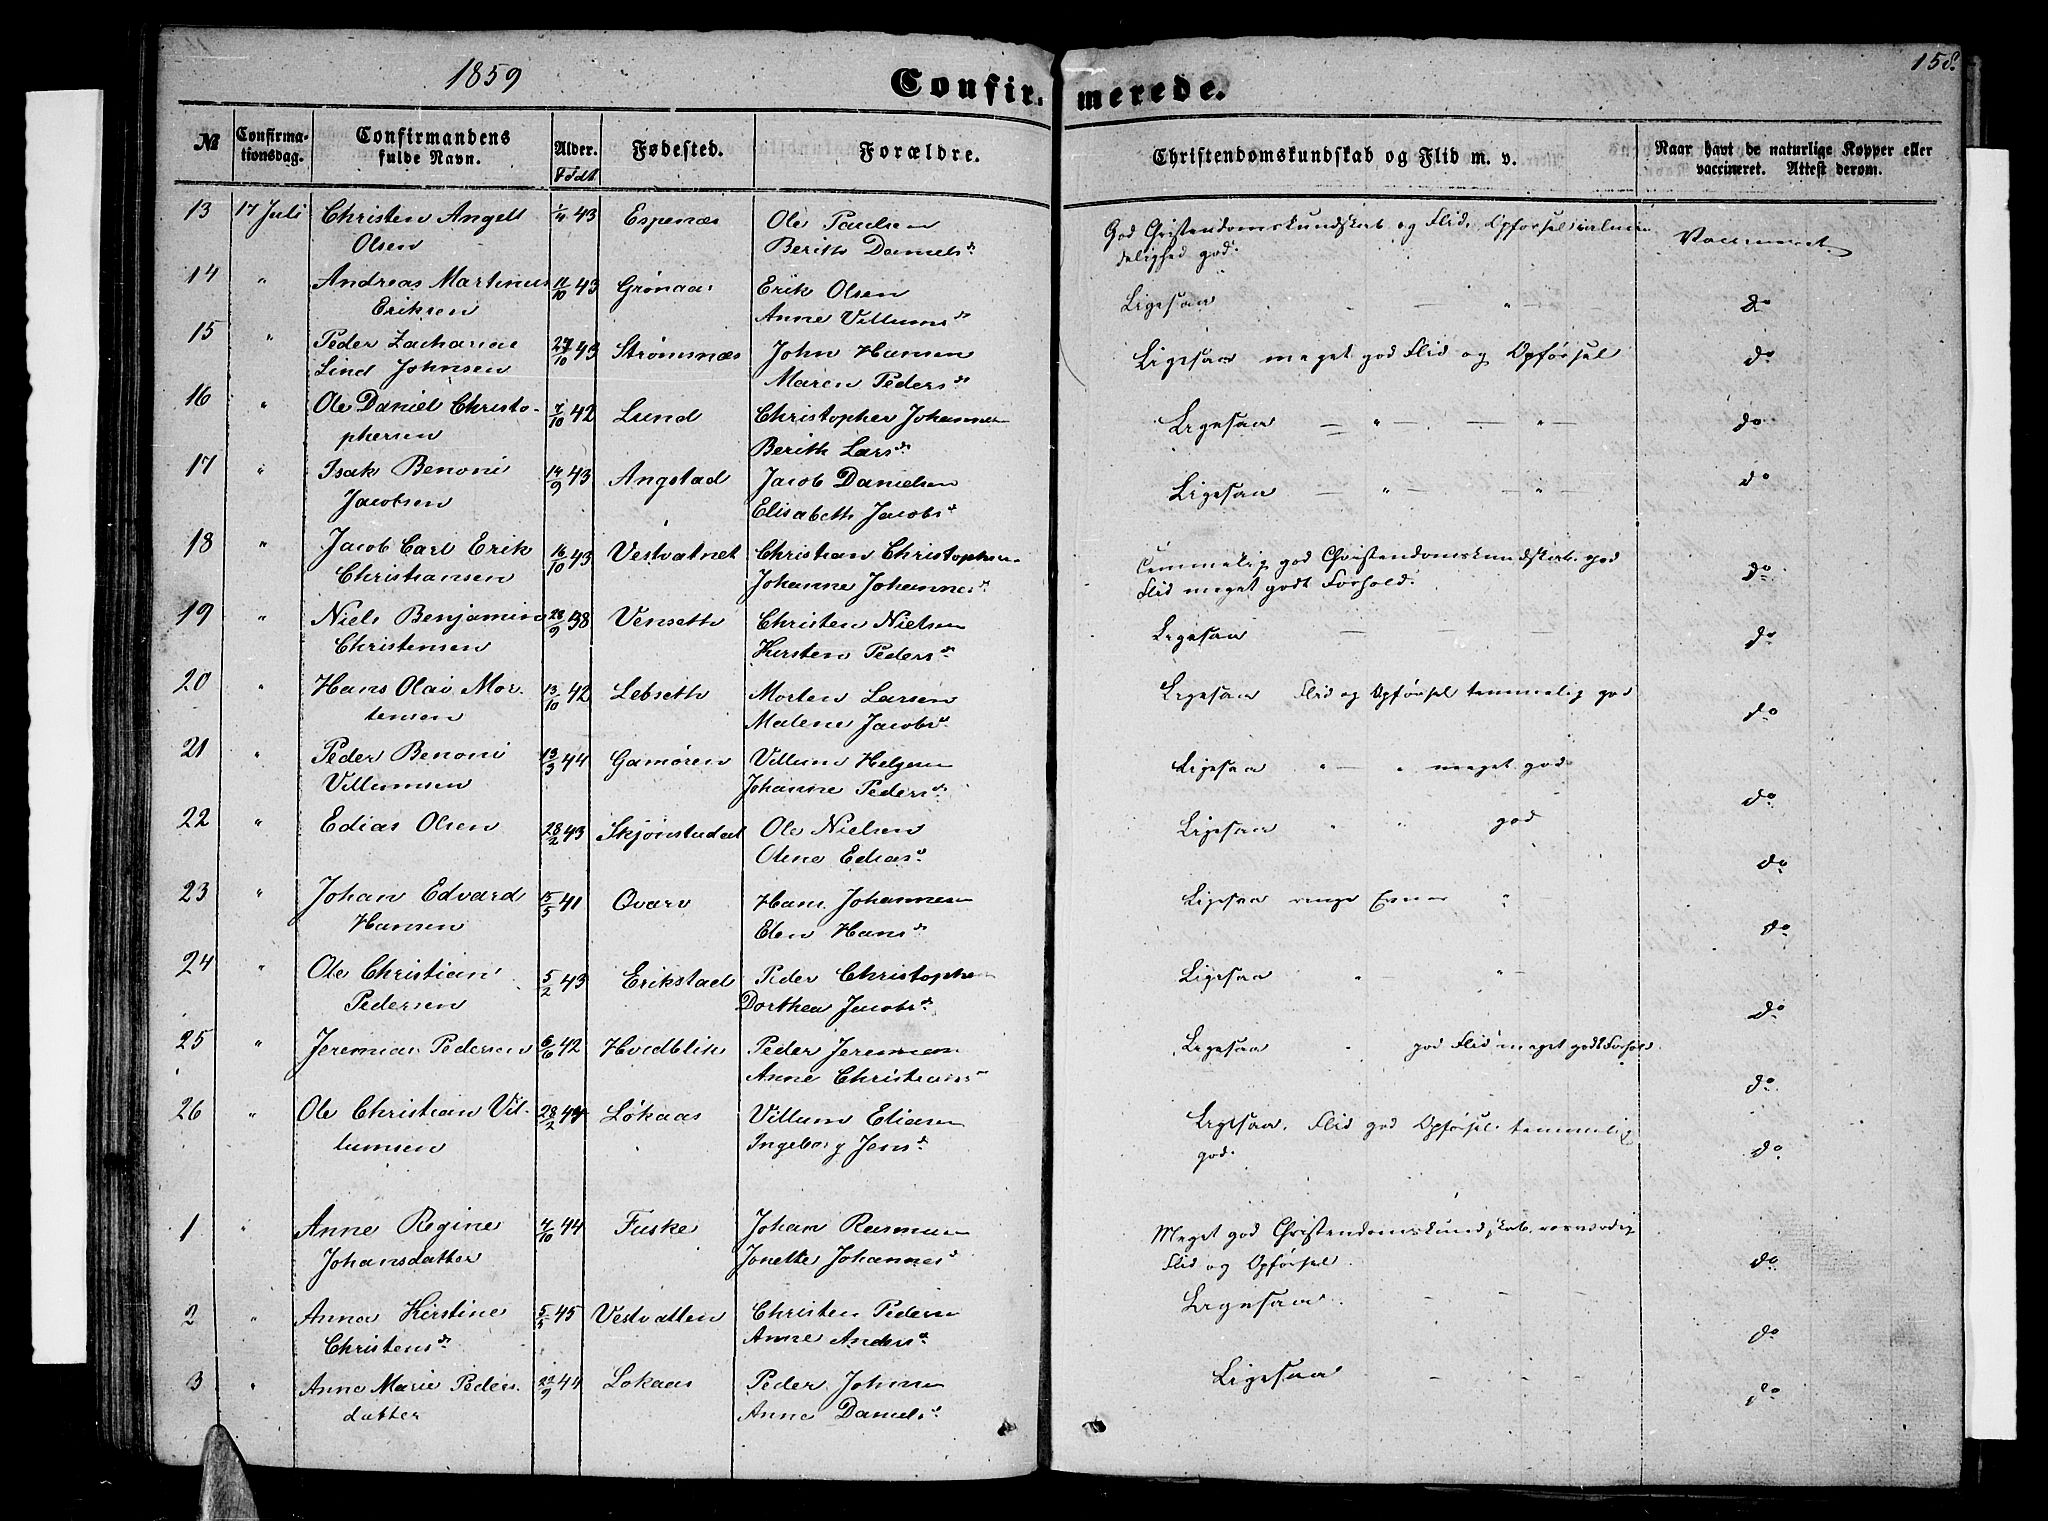 1859
Confir-merede.
158.
№ Confirma-tionsdag. Confirmandens fulde Navn. Alder. Født Fødested. Forældre. Christendomskundskab og Flid m. v. Naar havt de naturlige Kopper eller vaccineret. Attest derom.
13 17 Juli Christen Angell 43 Espenæs Ole Paulsen God Christendomskundskab og Flid, Opførsel
Olsen Berith Daniels d. god. Vaccineret
14 " Andreas Martinus 11/10 43 Grønaas Erik Olsen Ligesaa — " — do
Eriksen Anne Villums d
15 " Peder Zacharias 27/10 43 Strømsnæs John Hansen Ligesaa meget god Flid og Opførsel do
Lind Johnsen Maren Peders d
16 " Ole Daniel Christo- 7/10 42 Lund Christopher Johannes Ligesaa — " — — " — do
phersen Berith Lars d
17 " Isak Benoni 14/9 43 Angstad Jacob Danielsen Ligesaa — " — — " — do
Jacobsen Elisabeth Jacobs d
18 " Jacob Carl Erik 16/10 43 Vestvatnet Christian Christophers. temmelig god Christendomskundskab. god
Christiansen Johanne Johannes d Flid meget godt Forhold. do
19 " Niels Benjamin 28/9 38 Vensetth Christen Nielsen Ligesaa — — — do
Christensen Kirsten Peders d
20 " Hans Olai Mor- 13/10 42 Lebsetth Morten Larsen Ligesaa Flid og Opførsel temmelig god
tensen Malene Jacobs d do
21 " Peder Benoni 13/3 44 Gamøren Villum Helgesen Ligesaa " — " meget god
Villumsen Johanne Peders d. do
22 " Edias Olsen 28/2 43 Skjønstudal Ole Nielsen Ligesaa " " god
Oline Edias d. do
23 " Johan Edvard 15/5 41 Qvarv Hans Johannesen Ligesaa ringe Evner "
Hansen Elen Hans d do
24 " Ole Christian 5/2 43 Erikstad Peder Christophers Ligesaa " " —
Pedersen Dorthea Jacobs d. do
25 " Jeremias Pedersen 6/6 42 Hvidblik Peder Jeremias Ligesaa " god Flid meget godt Forhold.
Anne Christians do
26 " Ole Christian Vil- 28/2 Løkaas Villum Eliasen Ligesaa. Flid god Opførsel temmelig
lumsen Ingeborg Jens d. god. do
1 " Anne Regine 4/10 44 Fuske Johan Rasmusen Meget god Christendomskundskab.
Johansdatter Jonette Johannes d Flid og Opførsel. do
2 " Anna Kirstine 5/3 45 Vestvatten Christen Pedersen Ligesaa. — —
Christens d. Anne Anders d. do
3 " Anne Marie Peders 22/9 44 Løkaas Peder Johnsen Ligesaa — —
datter Anne Daniels d do